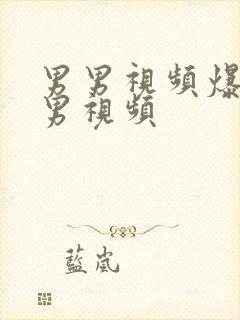 男男視頻爆
男視頻
藍嵐